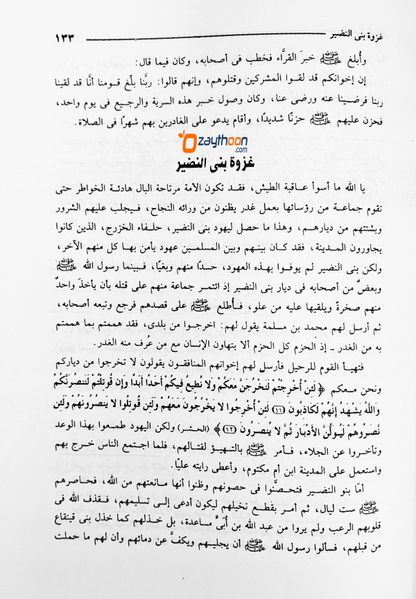 غزوة بنى النضير
١٣٣
وأبلغ ﷺ خبرَ القرَّاء فخطب فى أصحابه، وكان فيما قال:
إن إخوانكم قد لقوا المشركين وقتلوهم، وإنهم قالوا: ربَّنا بلِّغ قومنا أنَّا قد لقينا
ربنا فرضينا عنه ورضى عنا، وكان وصول خبر هذه السرية والرجيع فى يوم واحد،
فحزن عليهم ﷺ حزنًا شديدًا، وأقام يدعو على الغادرين بهم شهرًا فى الصلاة.
Ozaythoon
.com
غزوة بنى النضير
يا الله ما أسوأ عاقبة الطيش، فقد تكون الأمة مرتاحة البال هادئة الخواطر حتى
تقوم جماعة من رؤسائها بعمل غدر يظنون من ورائه النجاح، فيجلب عليهم الشرور
ويشتتهم من ديارهم، وهذا ما حصل ليهود بنى النضير، حلفاء الخزرج، الذين كانوا
يجاورون المدينة، فقد كان بينهم وبين المسلمين عهود يأمن بها كل منهم الآخر،
ولكن بنى النضير لم يوفوا بهذه العهود، حسدًا منهم وبغيًا، فبينما رسول الله ﷺ
وبعضٌ من أصحابه فى ديار بنى النضير إذ ائتمر جماعة منهم على قتله بأن يأخذ واحدٌ
منهم صخرةً ويلقيها عليه من علو، فأُطلع ﷺ على قصدهم فرجع وتبعه أصحابه،
ثم أرسل لهم محمد بن مسلمة يقول لهم: اخرجوا من بلدى، فقد هممتم بما هممتم
به من الغدر ـ إذ الحزم كل الحزم ألا يتهاون الإنسان مع من عُرف منه الغدر.
فتهيأ القوم للرحيل فأرسل لهم إخوانهم المنافقون يقولون لا تخرجوا من دياركم
ونحن معكم ﴿لَئِنْ أُخْرِجْتُمْ لَنَخْرُجَنَّ مَعَكُمْ وَلا نُطِيعُ فِيكُمْ أَحَدًا أَبَدًا وَإِن قُوتِلْتُمْ لَنَنصُرَنَّكُمْ
وَاللَّهُ يَشْهَدُ إِنَّهُمْ لَكَاذِبُونَ (١١) لَئِنْ أُخْرِجُوا لا يَخْرُجُونَ مَعَهُمْ وَلَئِن قُوتِلُوا لا يَنصُرُونَهُمْ وَلَئِن
نَّصَرُوهُمْ لَيُوَلُّنَّ الأَدْبَارَ ثُمَّ لا يُنصَرُونَ (١٢)﴾ (الحشر) ولكن اليهود طمعوا بهذا الوعد
وتأخروا عن الجلاء، فأمر ﷺ بالتهيؤ لقتالهم، فلما اجتمع الناس خرج بهم
واستعمل على المدينة ابن أم مكتوم، وأعطى رايته عليًا.
أمّا بنو النضير فتحصنُّوا فى حصونهم وظنوا أنها مانعتهم من الله، فحاصرهم
ﷺ ست ليال، ثم أمر بقطع نخيلهم ليكون أدعى إلى تسليمهم، فقذف الله فى
قلوبهم الرعب ولم يروا من عبد الله بن أُبىٍّ مساعدة، بل خذلهم كما خذل بنى قينقاع
من قبلهم، فسألوا رسول الله ﷺ أن يجليهم ويكفَّ عن دمائهم وأن لهم ما حملت